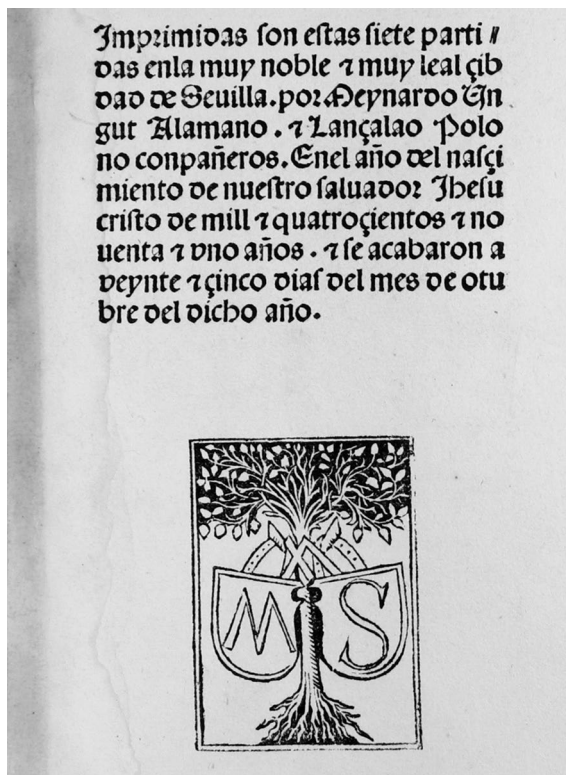 Imprimidas son estas siete parti//
das enla muy noble ⁊ muy leal çib
dad de Seuilla. por Meynardo Un
gut Alamano. ⁊ Lançalao Polo
no conpañeros. Enel año del nasçi
miento de nuestro saluador Jhesu
cristo de mill ⁊ quatroçientos ⁊ no
uenta ⁊ vno años. ⁊ se acabaron a
veynte ⁊ çinco dias del mes de otu
bre del dicho año.
M S